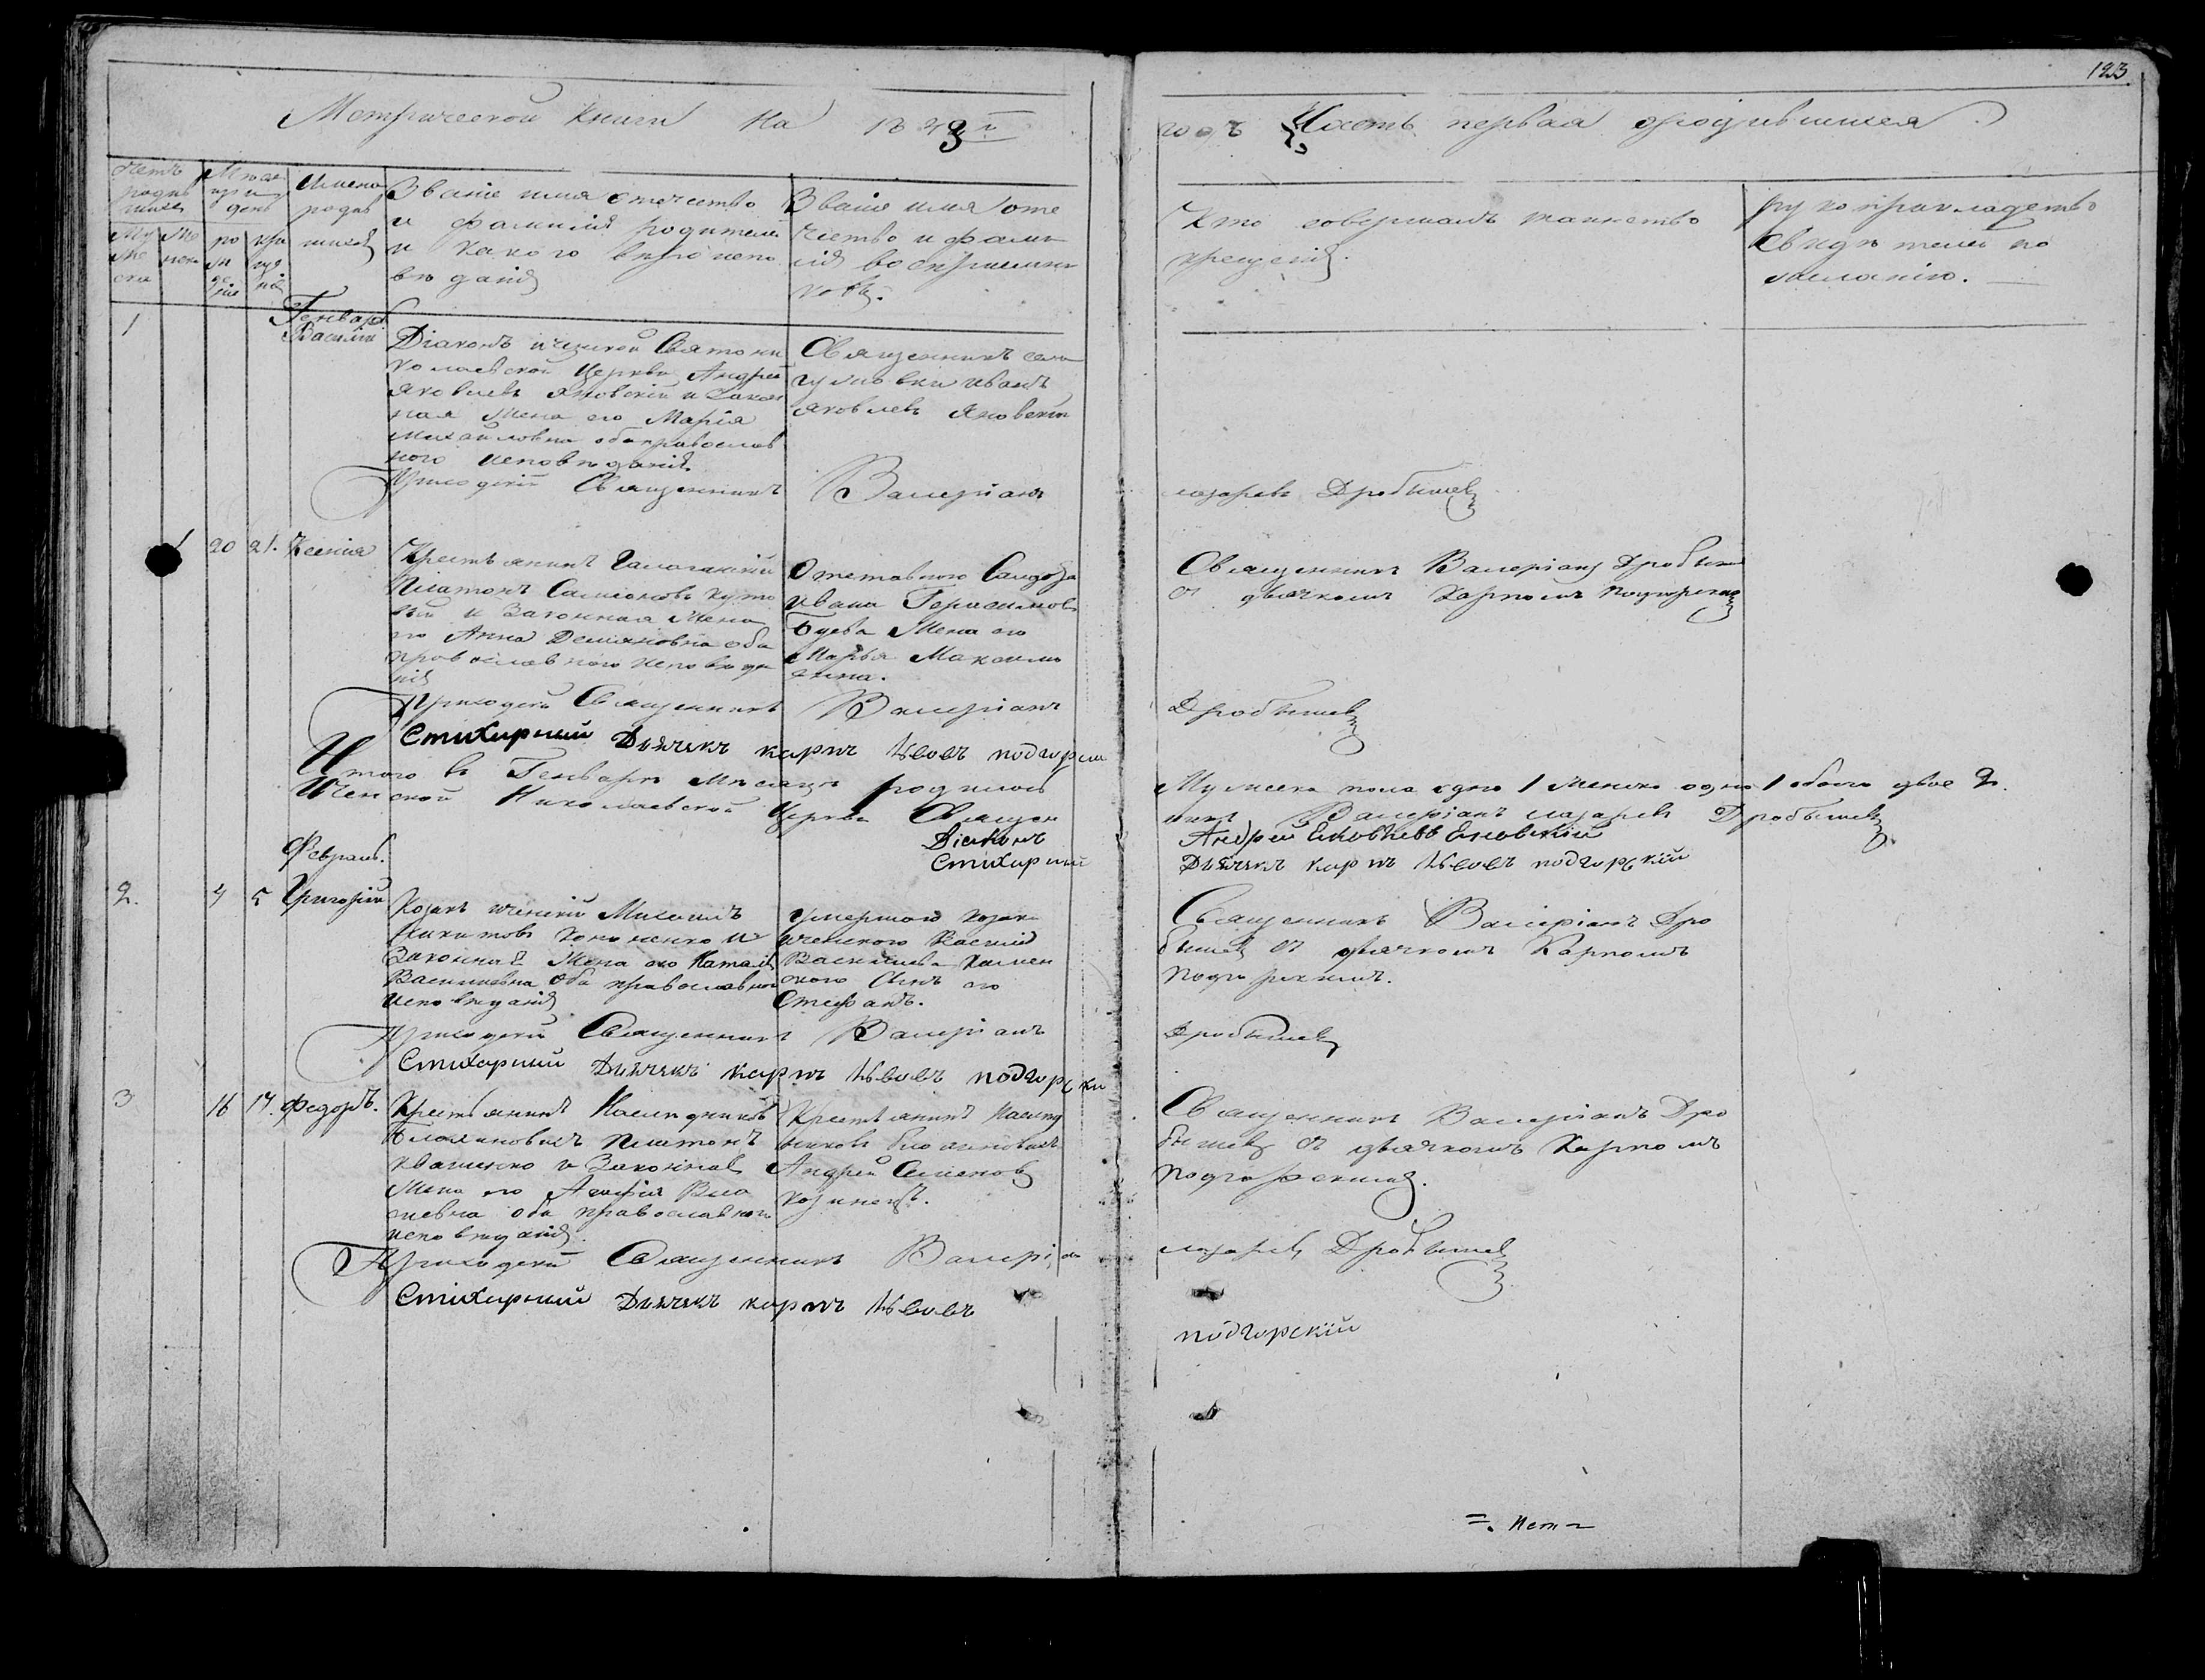 123
Метрической книги на 1843й
годъ Часть первая ородившихся.
Щетъ родившихся
Муже ска
Жен ска
Месяцъ и день
рожденіе
крещеніе
Имена родившихся
Званіе имя отечество
и фамиліи родителей
и какого вероиспо
веданія
Званіе имя оте
чество и фами
лія воспріемни
ковъ.
Кто совершалъ таинство
крещенія.
рукоприкладство
свидетелей по
желанію.
Генваря
1
Василій
Діаконъ иченской Свято ни
колаевской Церкви Андрей
Яковлевъ Яновскій и закон
ная жена его Марія
Михайловна оба православ
ного исповеданія
Священникъ села
гужовки Иванъ
Яковлевъ Яновскій
Приходскій Священникъ Валеріанъ
лазаревъ Дробышевъ
1 20 21. Ксенія
Крестьянинъ Галаганскій
Платонъ Самсоновъ
и Законная жена
его Анна Демяновна оба
православного исповеда
нія
Отставного Салдата
Ивана Герасимова
Буева жена его
Марья Максимо
вна.
Священникъ Валеріанъ Дробышевъ
съ дьячкомъ Карпомъ Подгорскимъ
Приходскій Священникъ Валеріанъ
Дробышевъ
Стихарний Дьячекъ карпъ Львовъ подгорски
Итого въ Генваре месяце родилось
Мужеска пола одно 1 женско одно 1 обоего двое 2.
Иченской Николаевской Церкви Священ
никъ Валеріанъ лазаревъ Дробышевъ
Діаконъ
Андрей Ековлевъ Еновскій
Стихарний
Дьячекъ карпъ Львовъ подгорскій
Февраль.
2. 4 5 Григорій
Козакъ иченскій Михаилъ
Никитовъ Кононенко и
Законная жена его Наталія
Васильевна оба православного
исповеданія
умершаго козака
иченского Василія
Васильева
сынъ его
Стефанъ.
Священникъ Валеріанъ Дро
бышевъ съ дьячкомъ Карпомъ
Подгорскимъ.
Приходскій Священникъ Валеріанъ
Дробышевъ
Стихарний Дьячекъ карпъ Львовъ подгорски
3 16 17. Федоръ.
Крестьянинъ Наследниковъ
Платонъ
Квашенко и Законная
жена его Агафія Вла
севна оба православного
исповеданія
Крестьянинъ Наслед
никовъ
Андрей Семеновъ
козинецъ.
Священникъ Валеріанъ Дро
бышевъ съ дьячкомъ Карпомъ
Подгорскимъ.
Приходскій Священникъ Валеріанъ
лазаревъ Дробышевъ
Стихарний Дьячекъ карпъ Львовъ
подгорскій